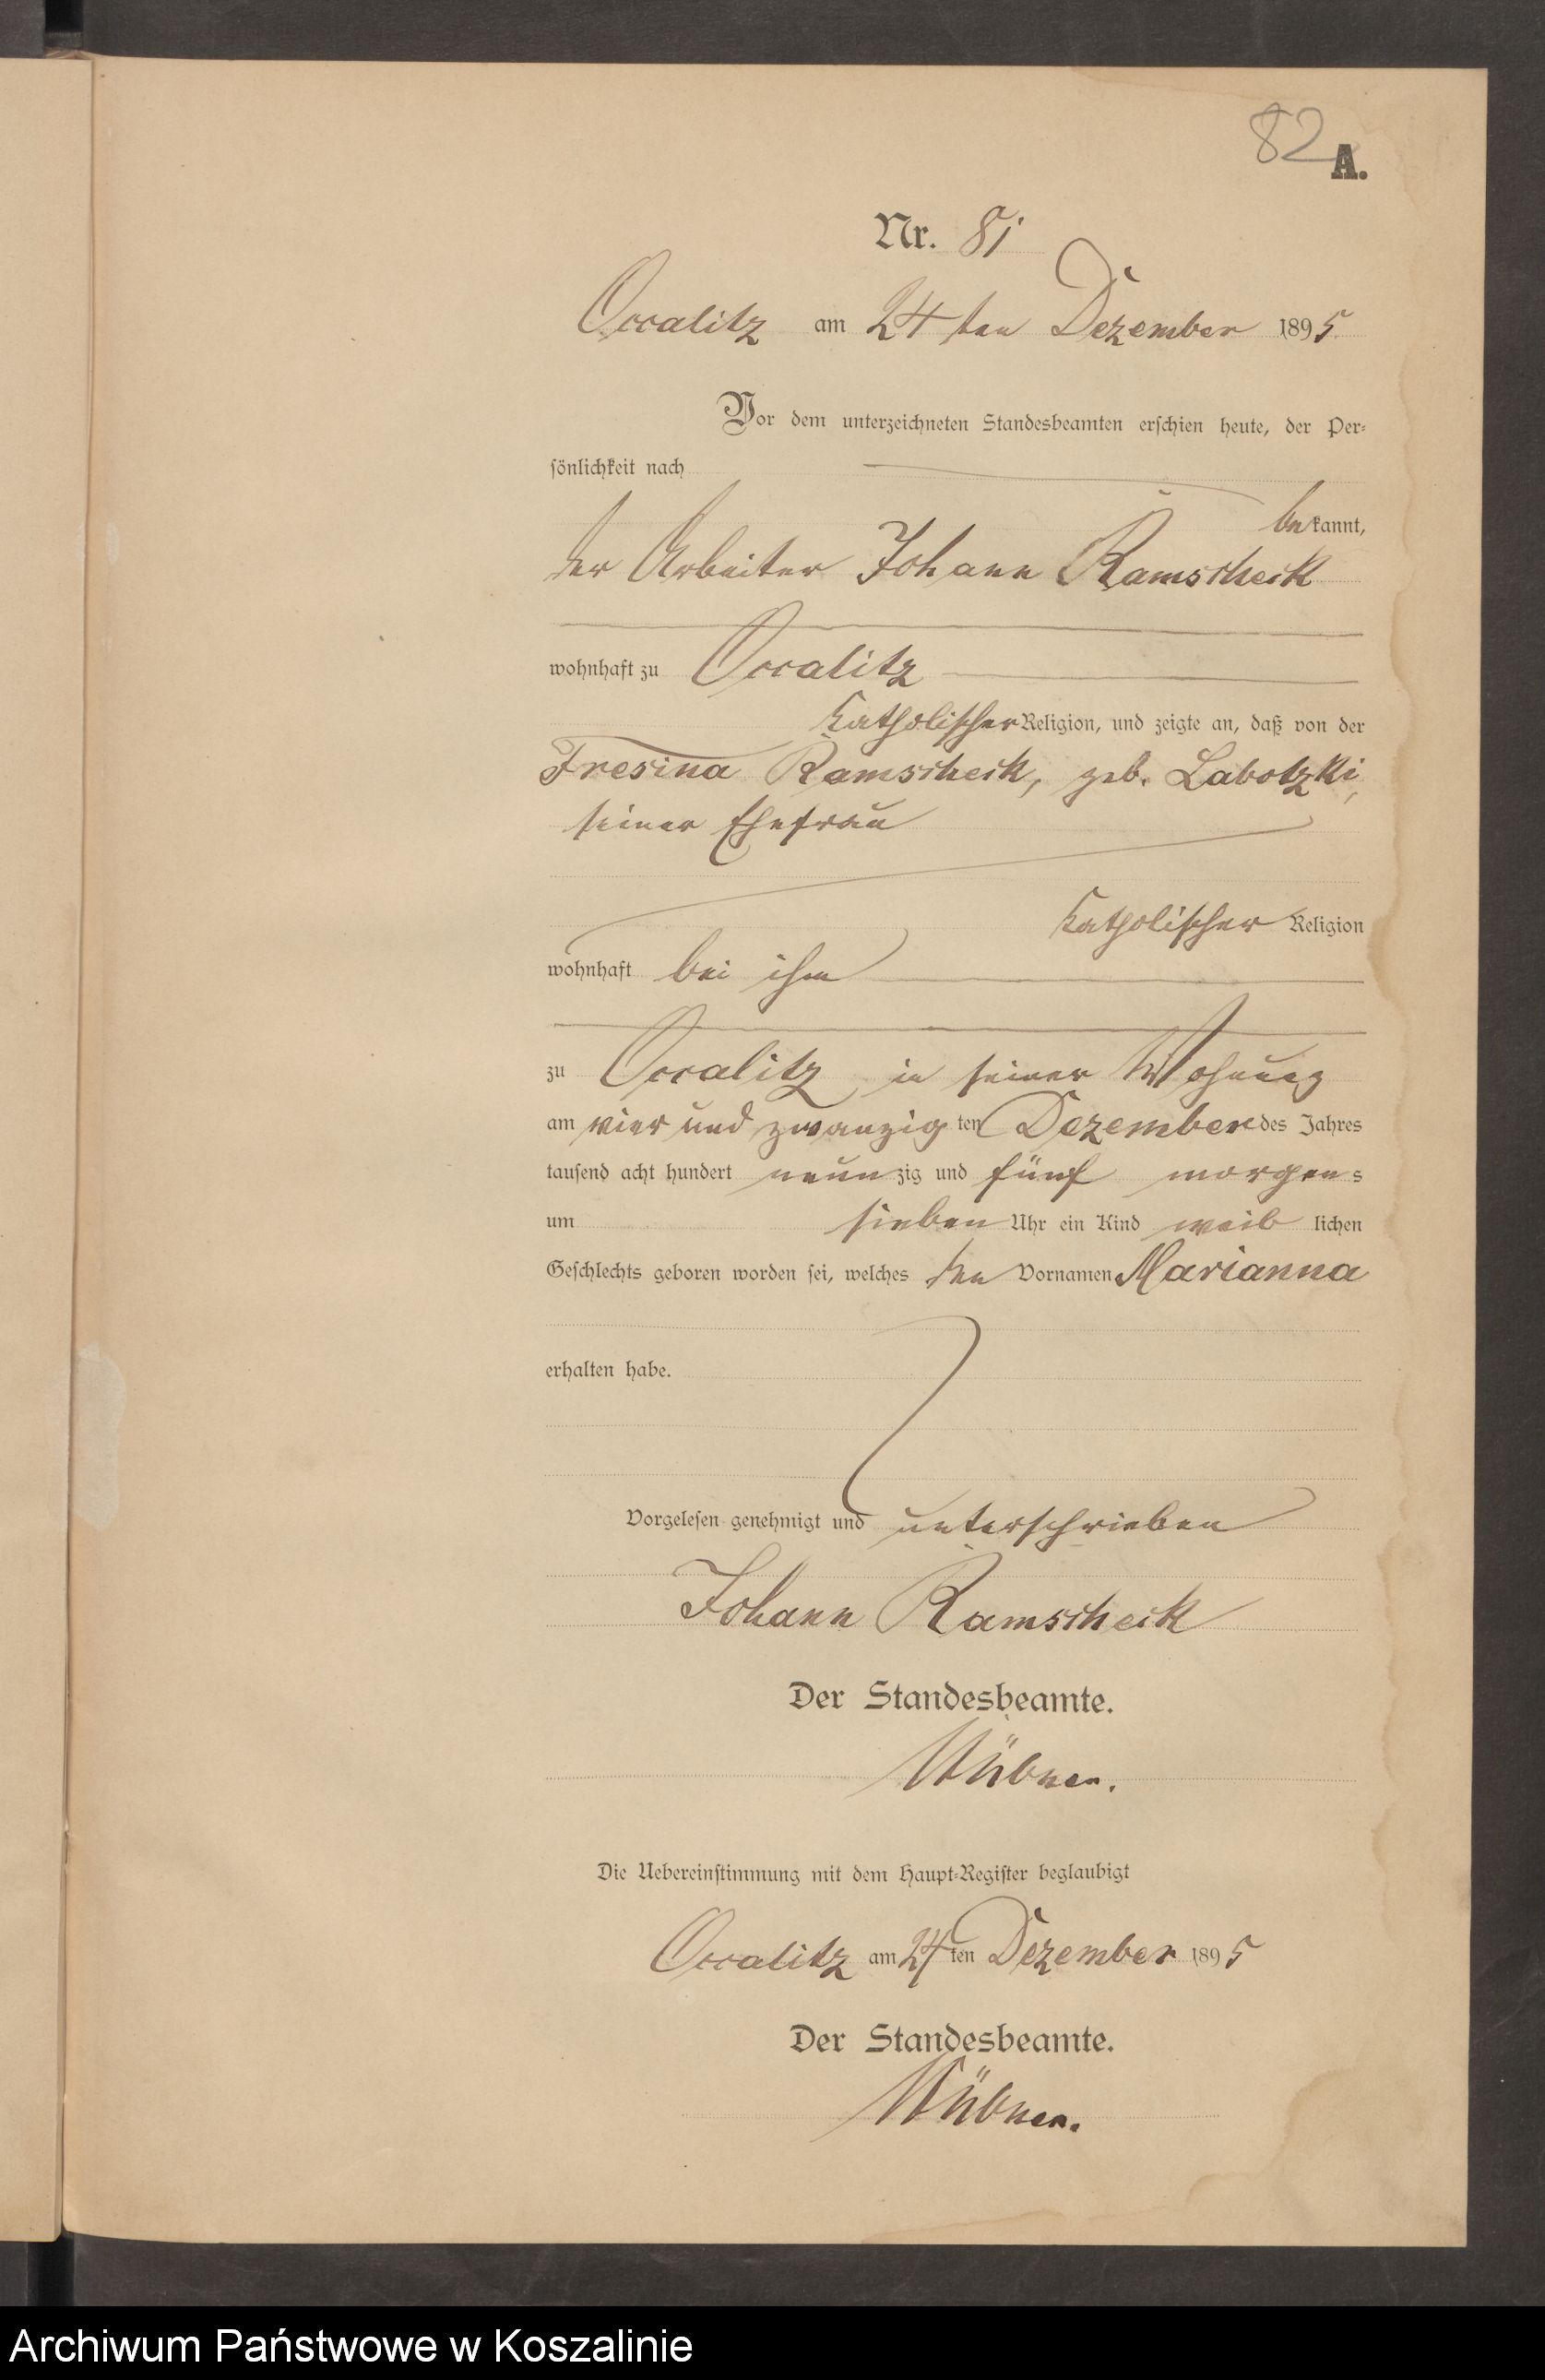 82
A.
Nr. 81
Occalitz am 24ten Dezember 1895.
Vor dem unterzeichneten Standesbeamten erschien heute, der Per-
sönlichkeit nach
bekannt,
der Arbeiter Johann Ramscheck
wohnhaft zu Occalitz
katholischer Religion, und zeigte an, daß von der
Fresina Ramscheck, geb. Labotzki,
seiner Ehefrau
katholischer Religion
wohnhaft bei ihm
zu Occalitz, in seiner Wohnung
am vier und zwanzig ten Dezember des Jahres
tausend acht hundert neunzig und fünf morgens
um sieben Uhr ein Kind weiblichen
Geschlechts geboren worden sei, welches den Vornamen Marianna
erhalten habe.
Vorgelesen genehmigt und unterschrieben
Johann Ramscheck
Der Standesbeamte.
Die Uebereinstimmung mit dem Haupt-Register beglaubigt
Occalitz am 24ten Dezember 1895
Der Standesbeamte.
Archiwum Państwowe w Koszalinie